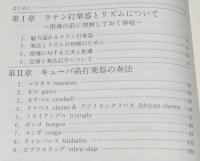 はじめに
第Ⅰ章 ラテン打楽器とリズムについて
～指導の前に理解しておく事項～
1. 魅力溢れるラテン打楽器
2. 奏法とリズムの理解のために
3. 指導に対する工夫と配慮
4. 記譜と奏法記号について
第Ⅱ章 キューバ系打楽器の奏法
1. マラカス maracas
2. ギロ guiro
3. カウベル cowbell
4. クラベス claves & アフリカンクラベス African claves
5. トライアングル triangle
6. ボンゴ bongos
7. コンガ conga
8. ティンバレス timbales
9. ビブラスラップ vibra slap